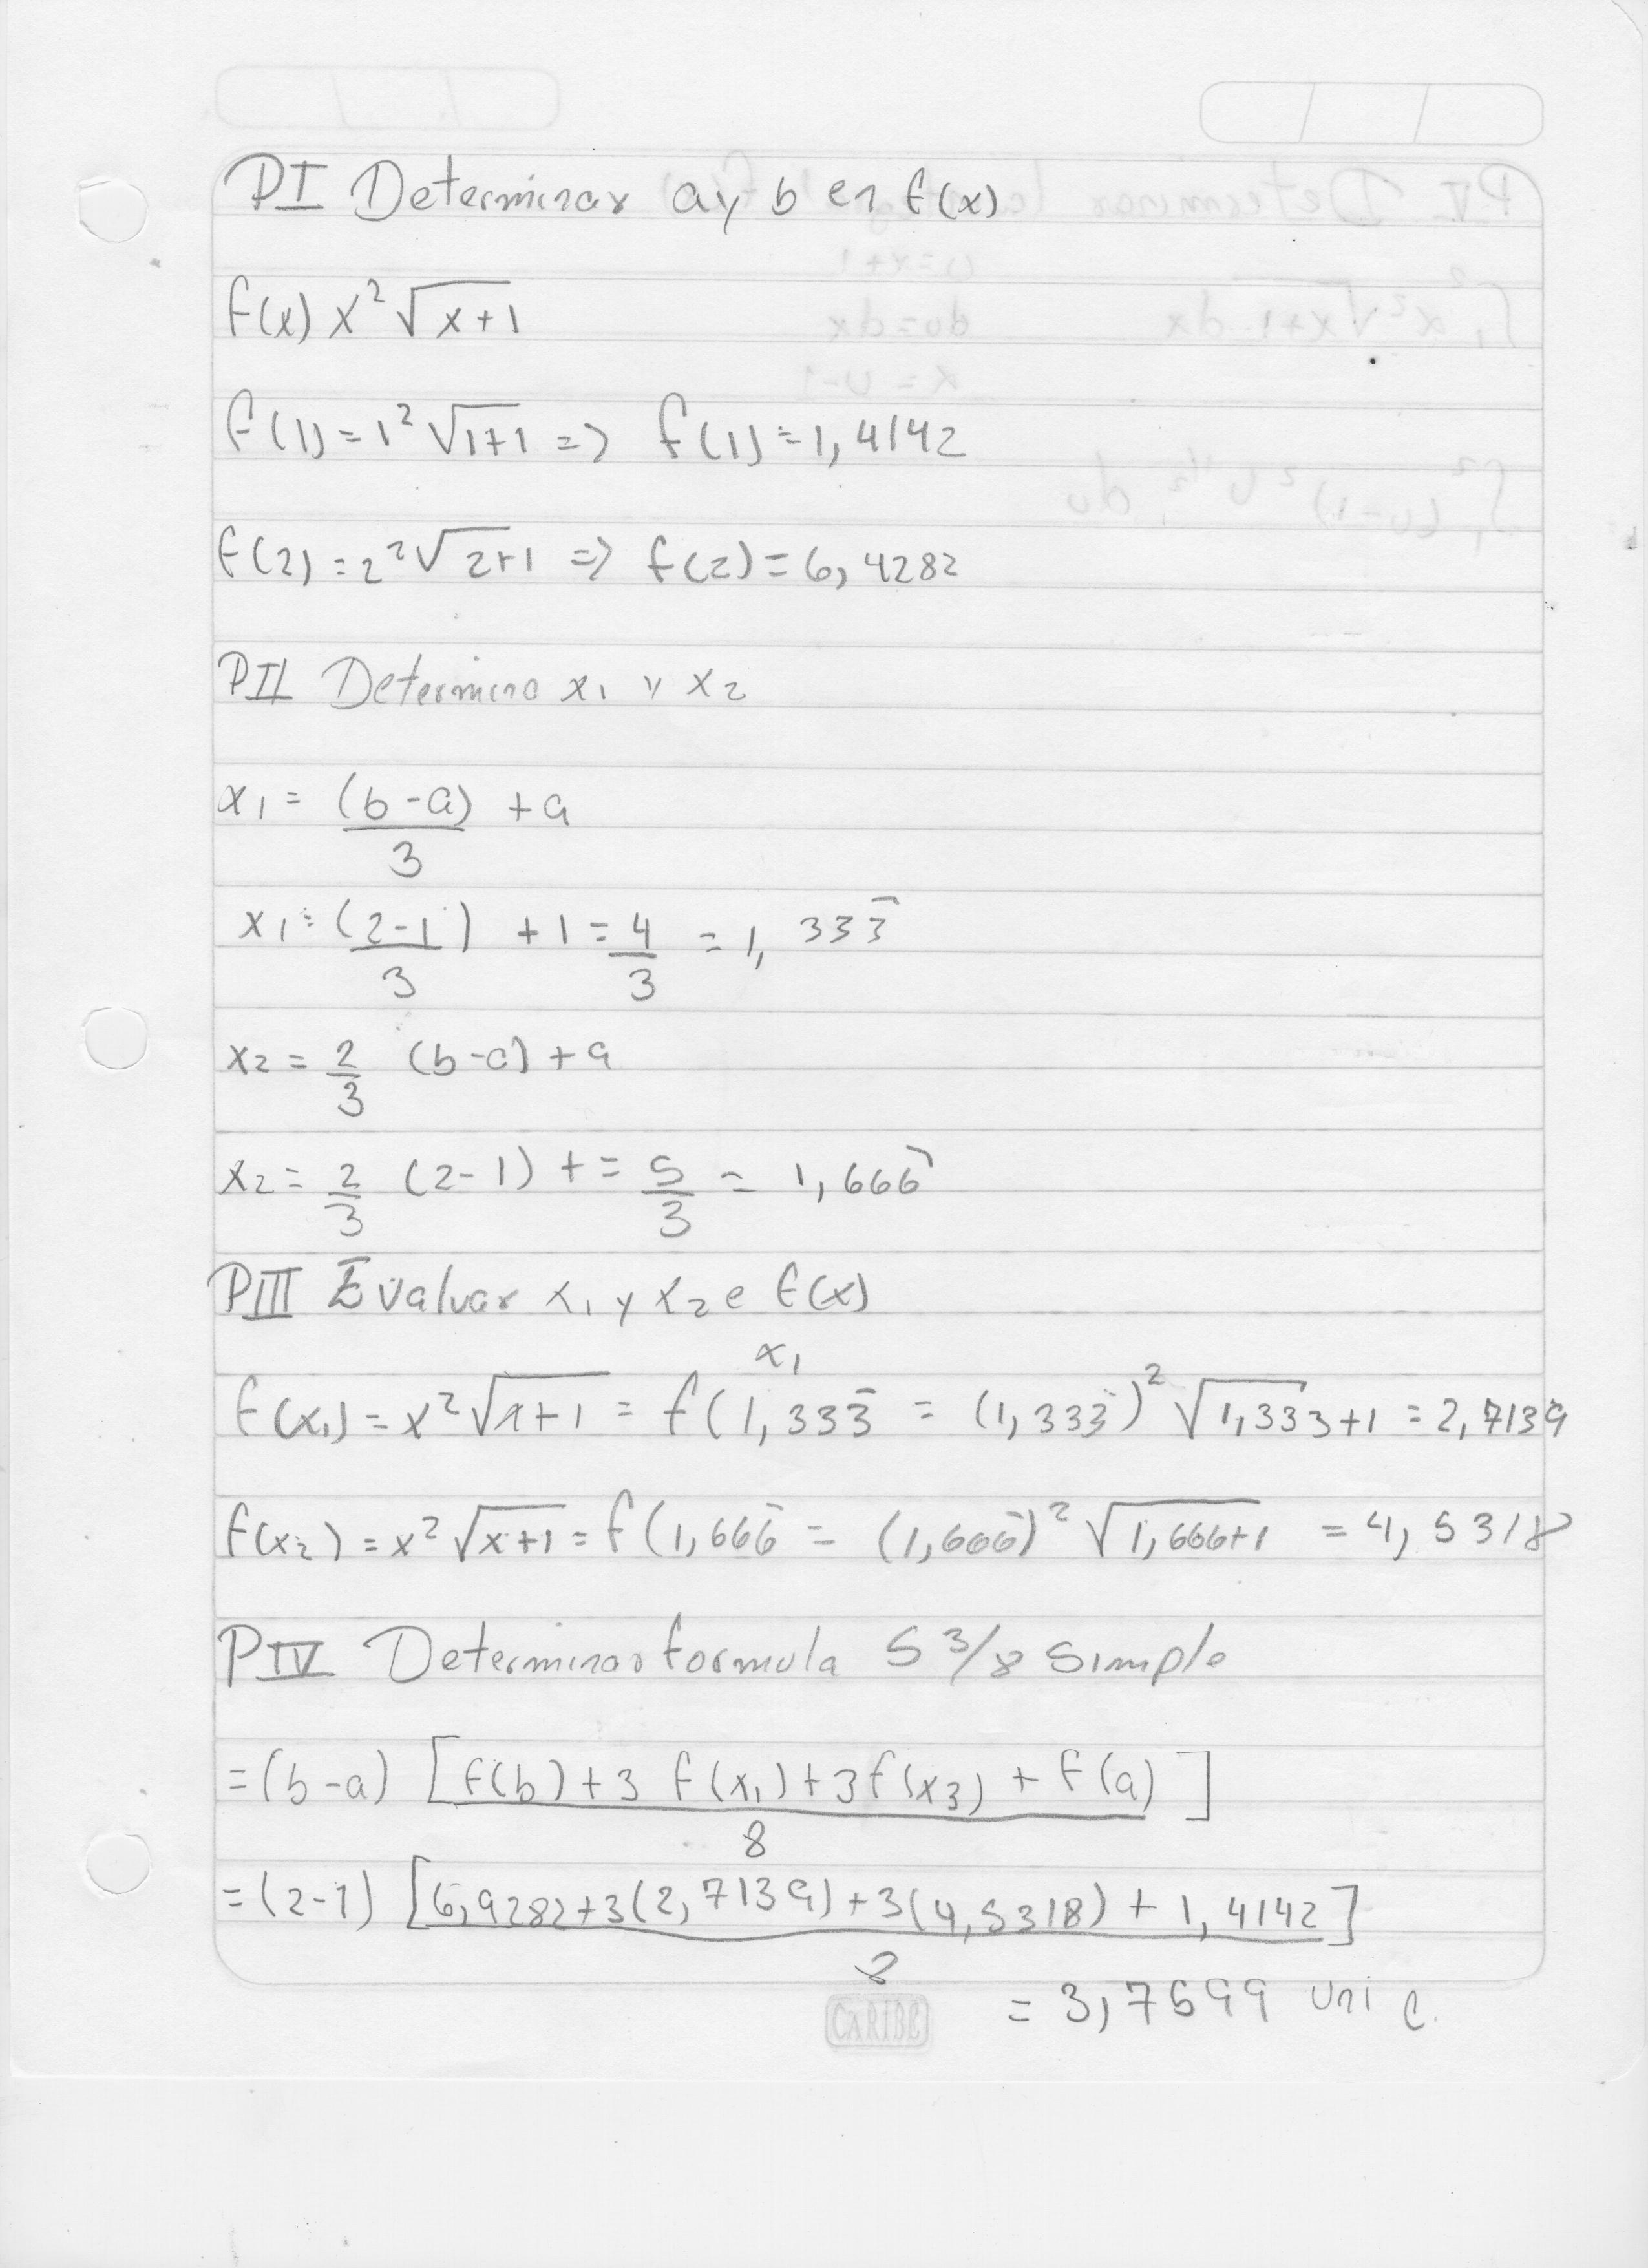 PI Determinar a y b en f(x)
f(x) x² √x+1
f(1) = 1² √1+1 => f(1) = 1,4142
f(2) = 2² √2+1 => f(2) = 6,4282
PII Determino x₁ y x₂
x₁ = (b-a) + a
3
x₁ = (2-1) + 1 = 4 = 1, 333̄
3 3
x₂ = 2 (b-a) + a
3
x₂ = 2 (2-1) + = 5 = 1,666̄
3 3
PIII Evaluar x₁ y x₂ e f(x)
x₁
f(x₁) = x² √x+1 = f(1,333̄ = (1,333̄)² √1,333+1 = 2,7139
f(x₂) = x² √x+1 = f(1,666̄ = (1,666̄)² √1,666+1 = 4,5318
PIV Determinar formula S 3/8 Simple
= (b-a) [f(b) + 3 f(x₁) + 3f(x₃) + f(a)]
8
= (2-1) [6,9282+3(2,7139)+3(4,5318) + 1,4142]
8
= 3,7599 uni c.
CARIBE